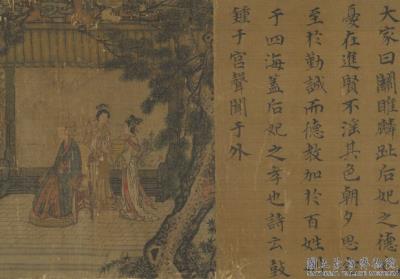 大家曰關雎麟趾后妃之德
憂在進賢不淫其色朝夕思
至於勤誠而德教加於百姓
于四海蓋后妃之孝也詩云鼓
鍾于宮聲聞于外
國立故宮博物院